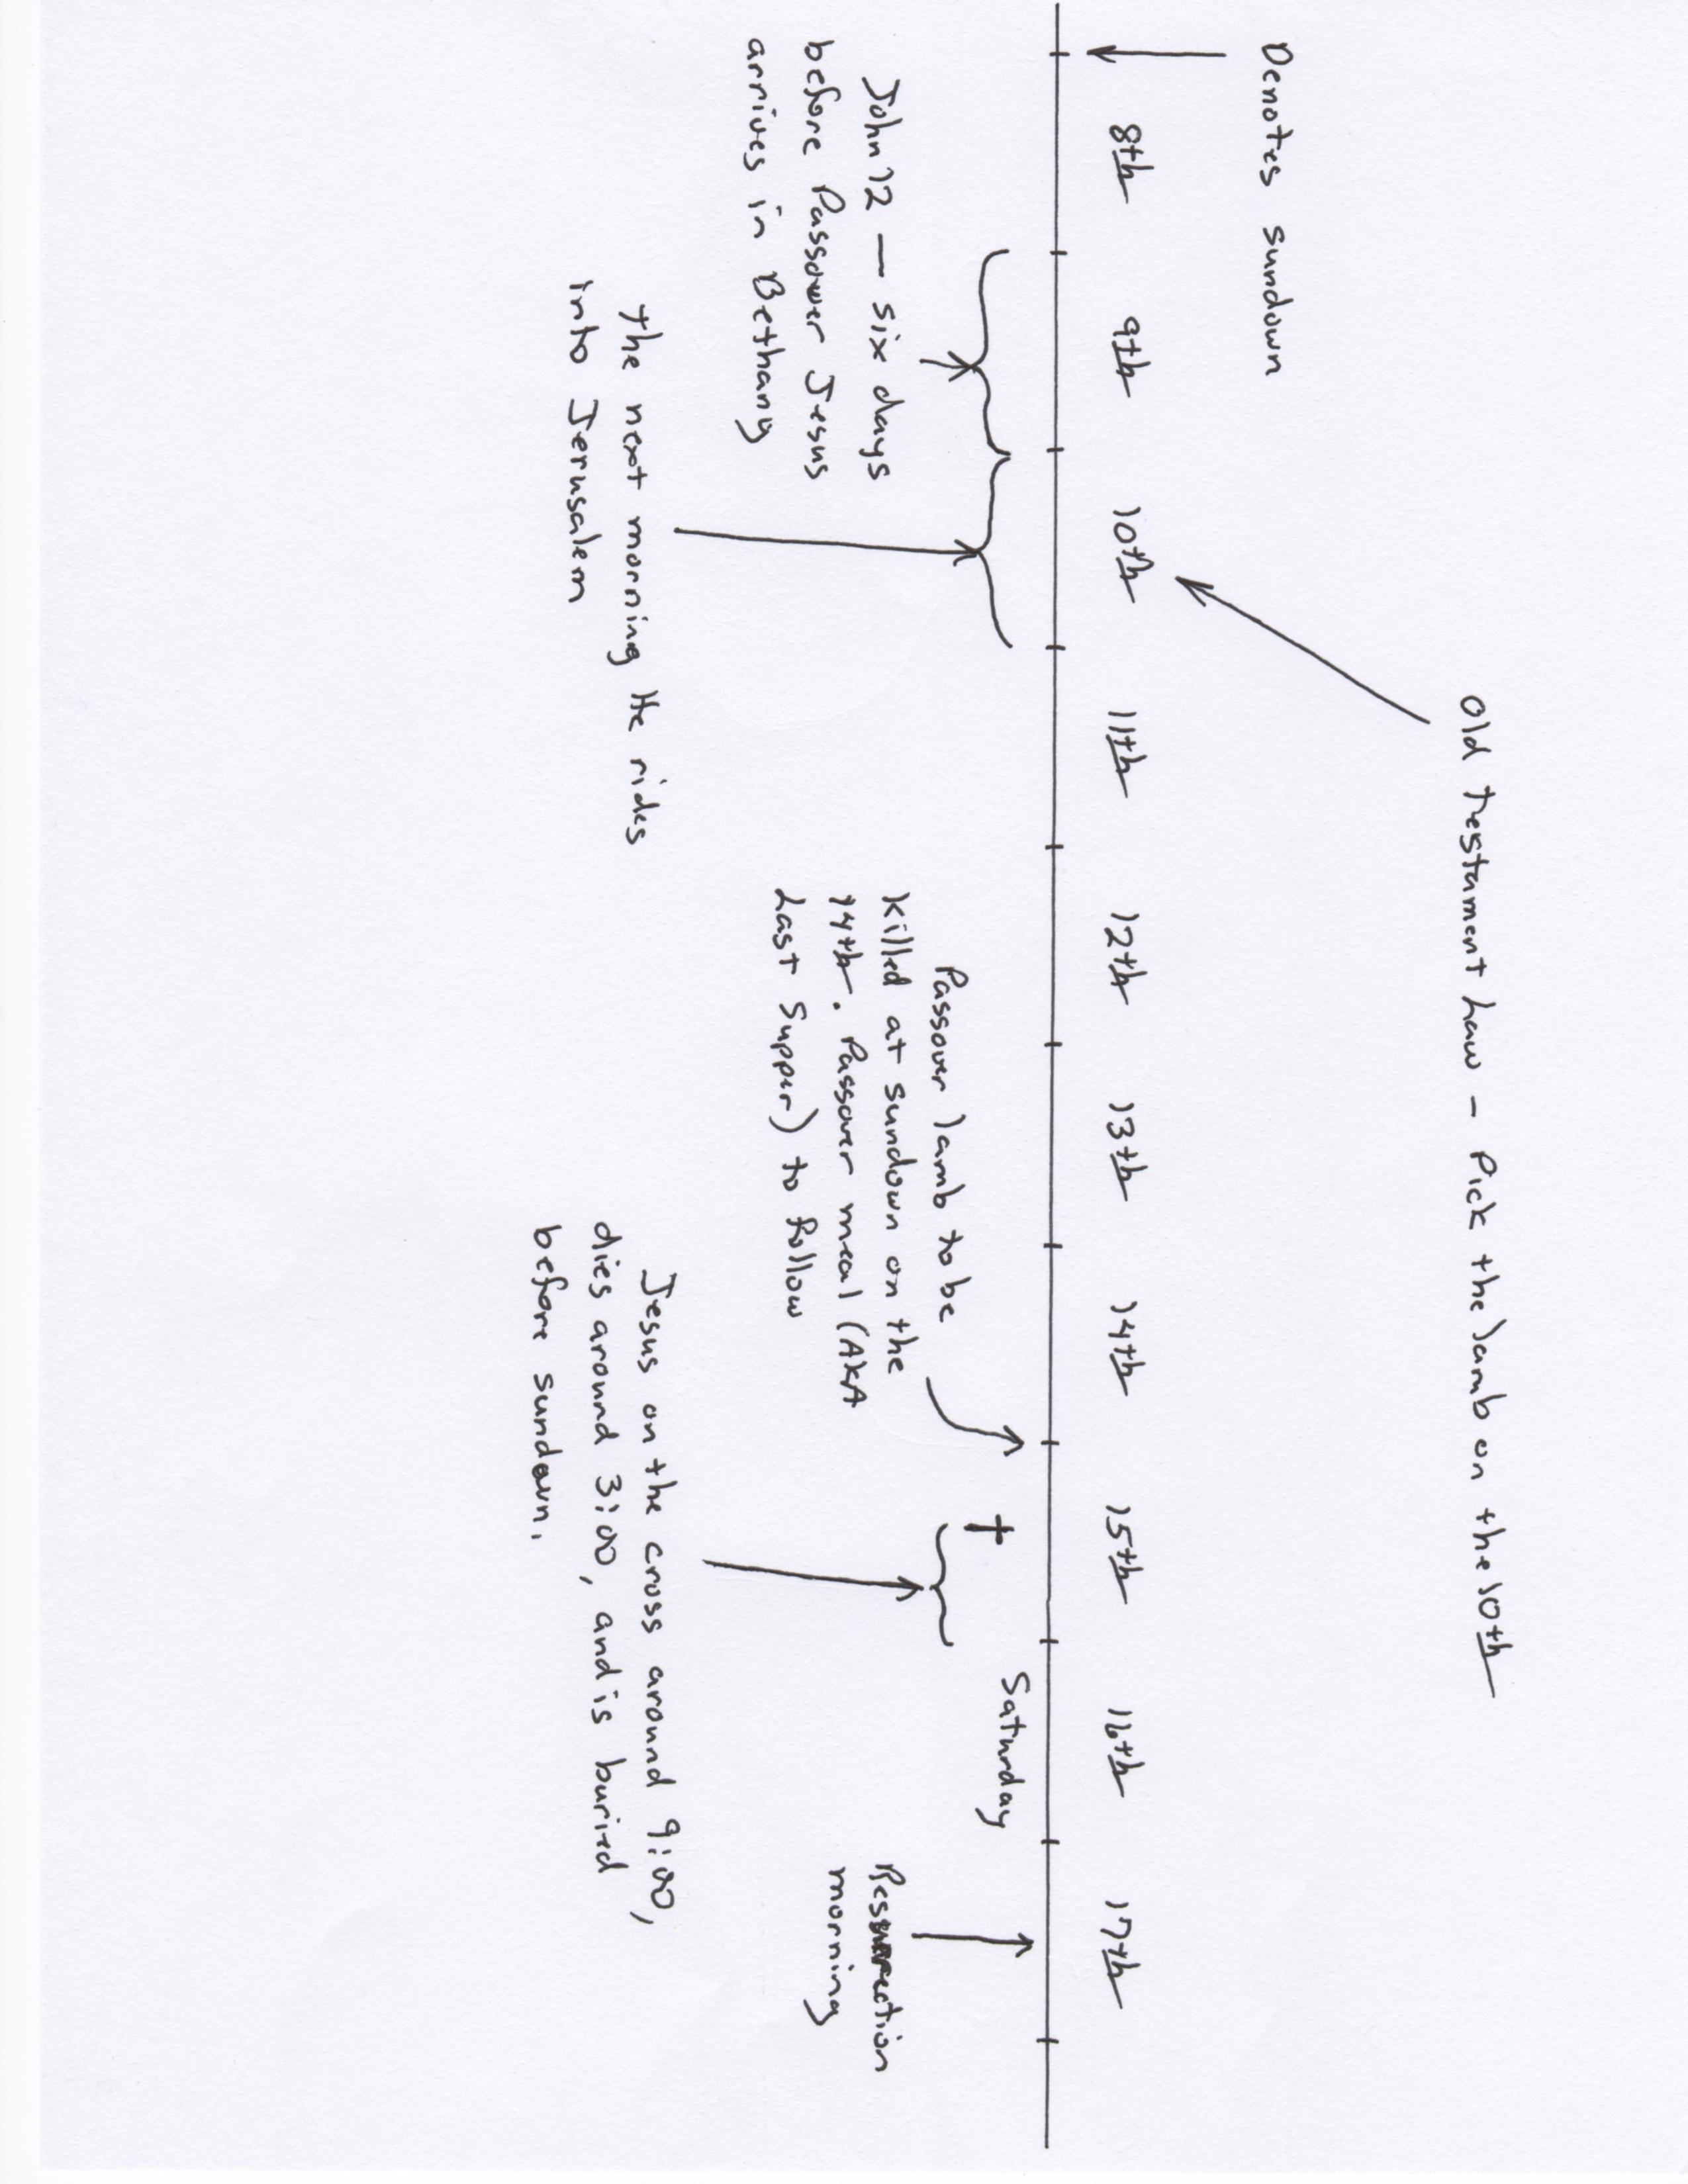 Old Testament Law - Pick the lamb on the 10th
Denotes sundown
8th 9th 10th 11th 12th 13th 14th 15th 16th 17th
Saturday
John 12 — six days
before Passover Jesus
arrives in Bethany
The next morning He rides
into Jerusalem
Passover lamb to be
killed at sundown on the
14th. Passover meal (AKA
Last Supper) to follow
Jesus on the cross around 9:00,
dies around 3:00, and is buried
before sundown.
Resurrection
morning